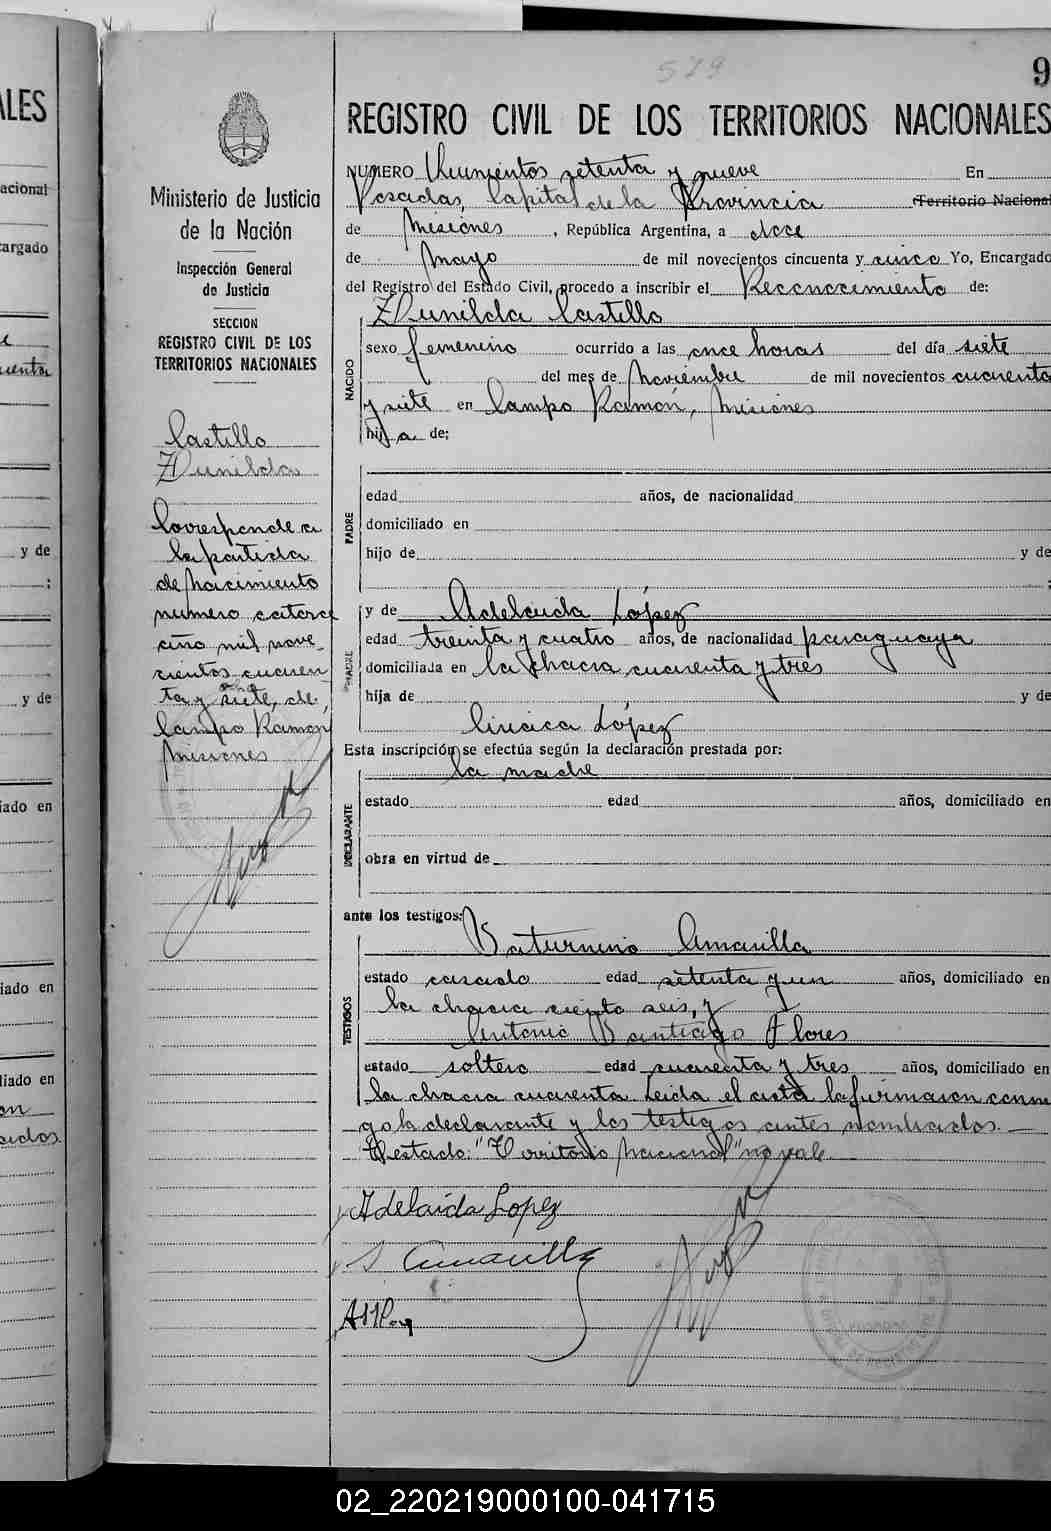 579
9
REGISTRO CIVIL DE LOS TERRITORIOS NACIONALES
Ministerio de Justicia
de la Nación
Inspección General
de Justicia
SECCION
REGISTRO CIVIL DE LOS
TERRITORIOS NACIONALES
Castillo
Zunilda
Corresponde a
la partida
de nacimiento
numero catorce
año mil nove-
cientos cuaren-
ta y siete, de
Campo Ramón
Misiones
NUMERO Quinientos setenta y nueve En
Posadas, Capital de la Provincia Territorio Nacional
de Misiones, República Argentina, a doce
de mayo de mil novecientos cincuenta y cinco Yo, Encargado
del Registro del Estado Civil, procedo a inscribir el Reconocimiento de:
Zunilda Castillo
NACIDO
sexo femenino ocurrido a las once horas del día siete
del mes de Noviembre de mil novecientos cuarenta
y siete en Campo Ramón, Misiones
hija de:
PADRE
edad años, de nacionalidad
domiciliado en
hijo de y de
;
MADRE
y de Adelaida López
edad treinta y cuatro años, de nacionalidad paraguaya
domiciliada en la chacra cuarenta y tres
hija de y de
López
Esta inscripción se efectúa según la declaración prestada por:
la madre
DECLARANTE
estado edad años, domiciliado en
obra en virtud de
ante los testigos:
Saturnino Amarilla
TESTIGOS
estado casado edad setenta y un años, domiciliado en
la chacra ciento seis, y
Antonio Santiago Flores
estado soltero edad cuarenta y tres años, domiciliado en
la chacra cuarenta. Leida el acta la firmaron conmi
go la declarante y los testigos antes nombrados.—
Testado: "Territorio Nacional" no vale
Adelaida Lopez
S Amarilla
ALES
acional
cargado
y de
:
y de
iado en
iado en
liado en
02_220219000100-041715